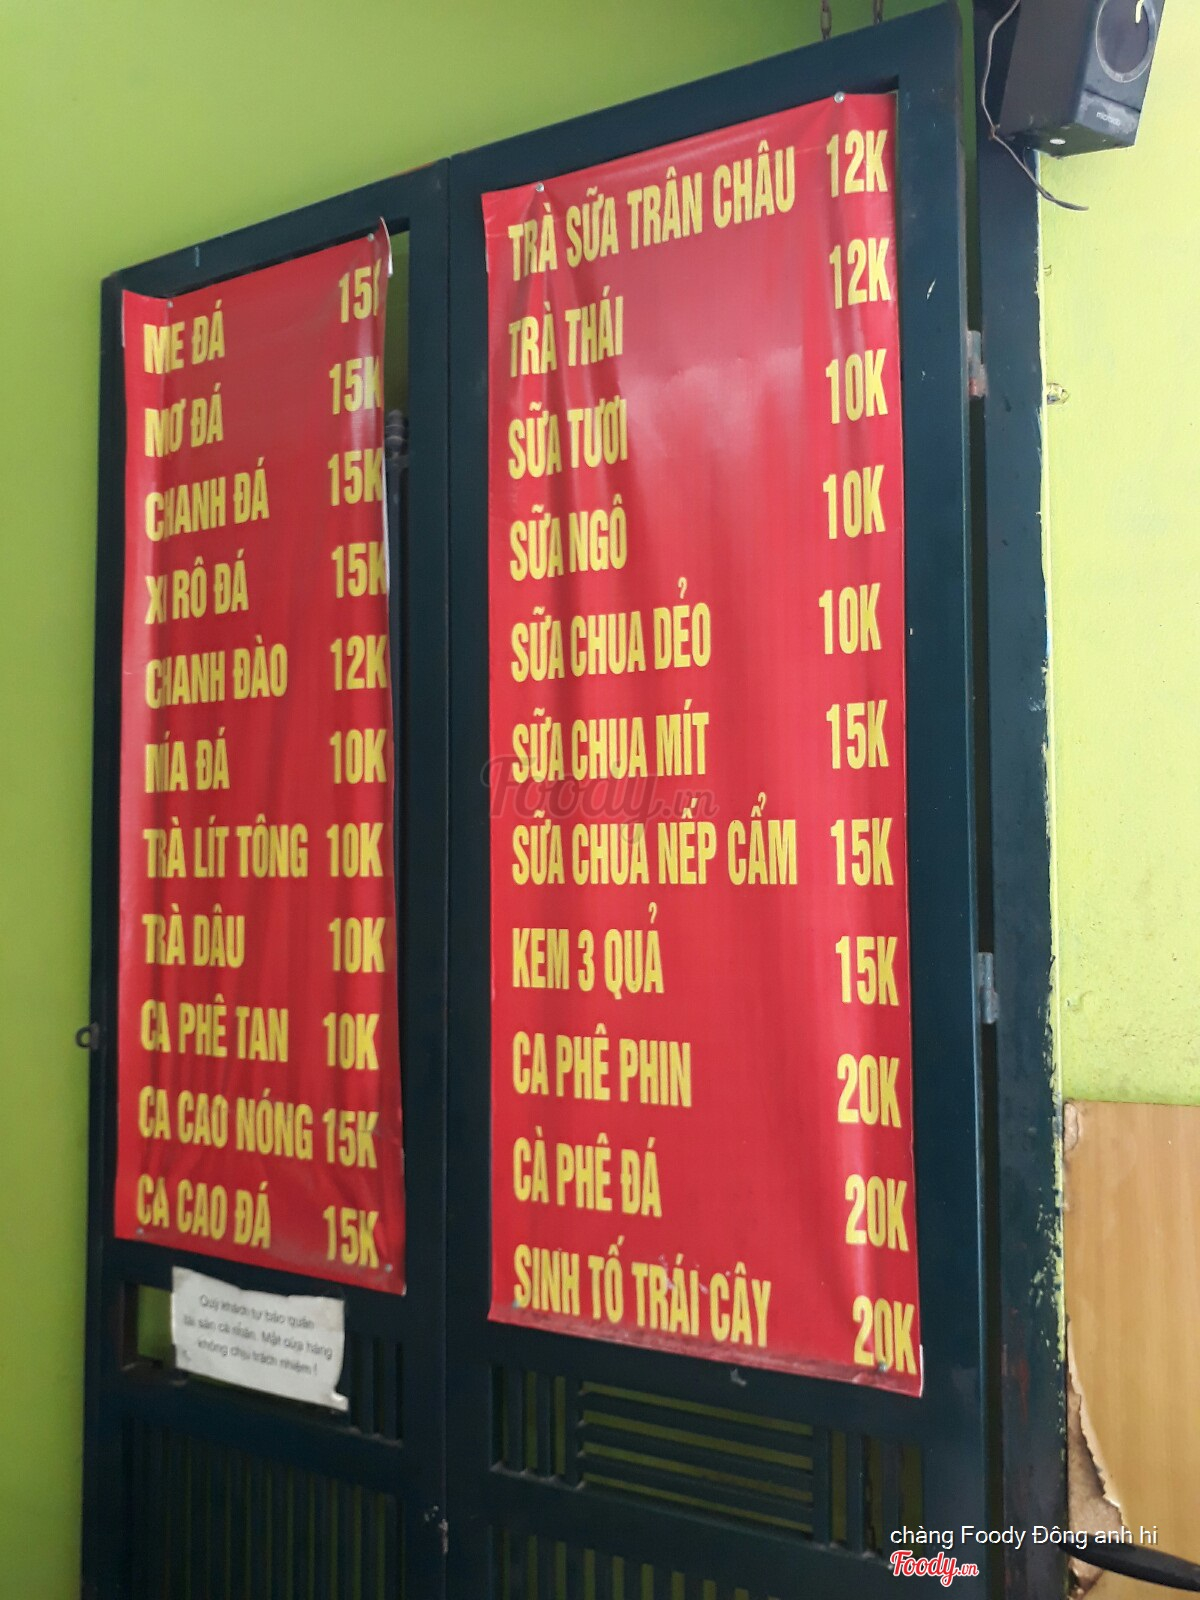 ME ĐÁ 15K
MƠ ĐÁ 15K
CHANH ĐÁ 15K
XI RÔ ĐÁ 15K
CHANH ĐÀO 12K
MÍA ĐÁ 10K
TRÀ LÍT TÔNG 10K
TRÀ DÂU 10K
CA PHÊ TAN 10K
CA CAO NÓNG 15K
CA CAO ĐÁ 15K
Quý khách tự bảo quản
tài sản cá nhân. Mất cửa hàng
không chịu trách nhiệm !
TRÀ SỮA TRÂN CHÂU 12K
TRÀ THÁI 12K
SỮA TƯƠI 10K
SỮA NGÔ 10K
SỮA CHUA DẺO 10K
SỮA CHUA MÍT 15K
SỮA CHUA NẾP CẨM 15K
KEM 3 QUẢ 15K
CA PHÊ PHIN 20K
CÀ PHÊ ĐÁ 20K
SINH TỐ TRÁI CÂY 20K
microlab
Foody.vn
chàng Foody Đông anh hi
Foody.vn